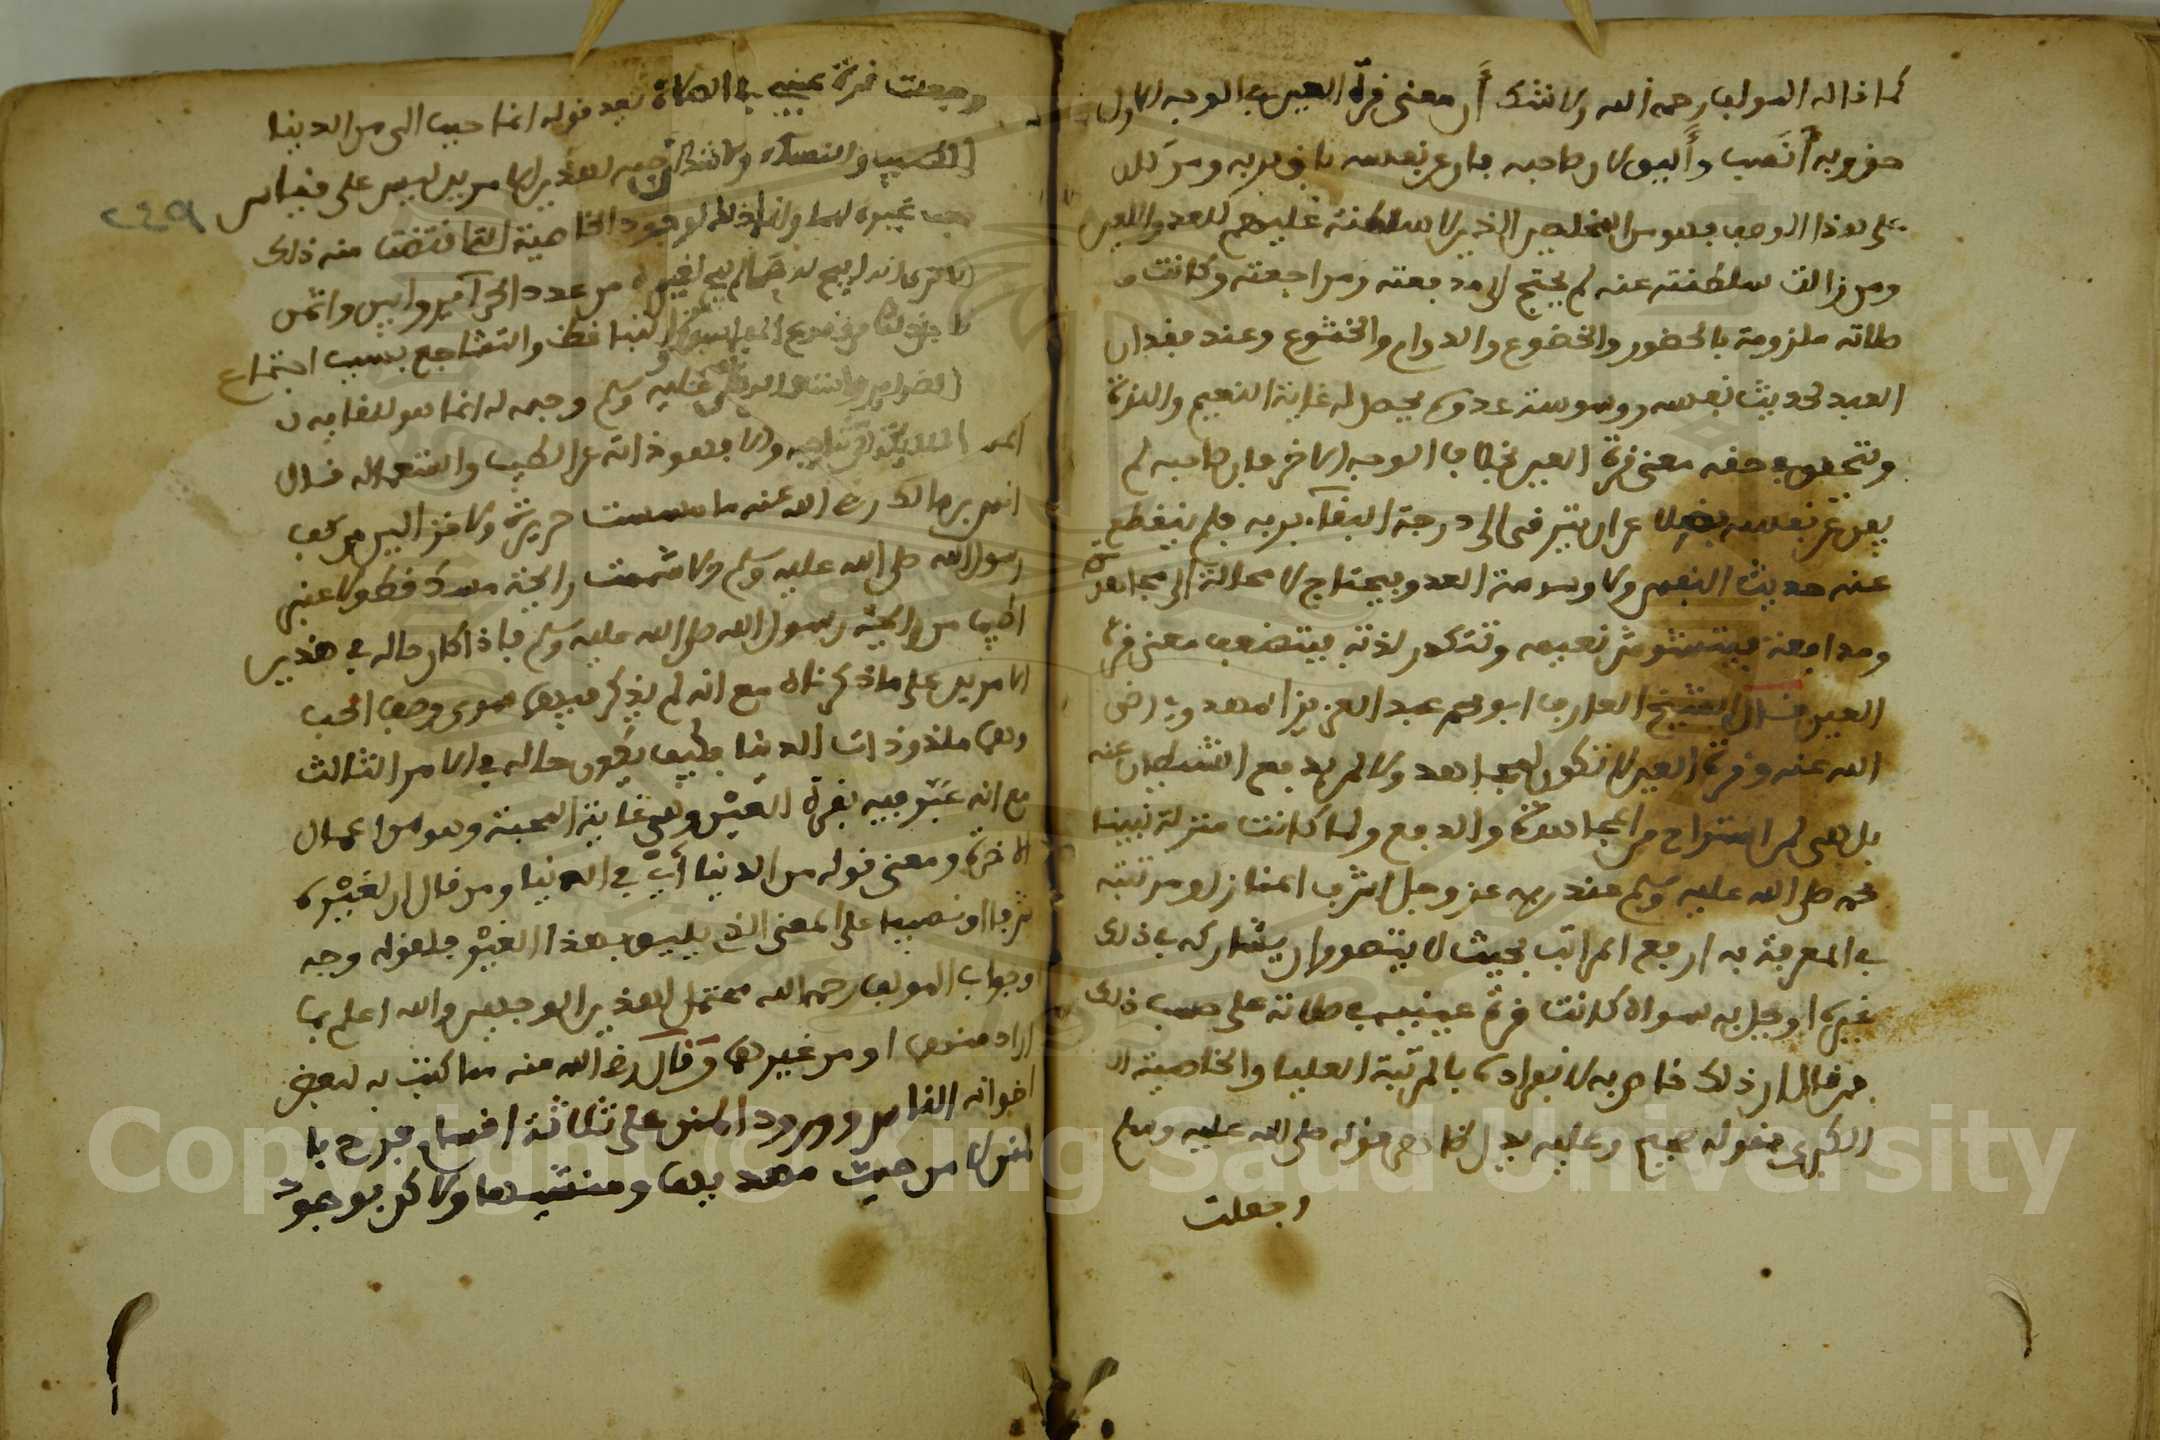 كما قاله المولف رحمه الله ولا شك أن معنى قرة العين في الوجه الاول
حقوبه أنصب وأليق لان صاحبه فارع نفسه باق بربه ومن كان
على هذا الوصف فهو من المخلصين الذين لا سلطنة عليهم للعدو اللعين
ومن زالت سلطنته عنه لم يحتج الى مدافعته ومراجعته وكانت
صلاته ملزومة بالحضور والخضوع والدوام والخشوع وعند فقدان
العبد لحديث نفسه ووسوسة عدوه يحصل له غاية النعيم واللذة
وتتحقق في حقه معنى قرة العين بخلاف الوجه الاخر فان صاحبه لم
يفن عن نفسه فضلا عن ان يترقى الى درجة البقاء بربه فلم ينقطع
عنه حديث النفس ولا وسوسة العدو فيحتاج لا محالة الى مجاهدة
ومدافعة فيتشوش نعيمه وتتكدر لذته فيضعف معنى قرة
العين قال الشيخ العارف ابو محمد عبد العزيز المهدوي رضي
الله عنه وقرة العين لا تكون لمن يجاهد ولا لمن يدفع الشيطان عنه
بل هي لمن استراح من المجاهدة والدفع ولما كانت منزلة نبينا
محمد صلى الله عليه وسلم عند ربه عز وجل اشرف المنازل ومرتبته
في المعرفة به ارفع المراتب بحيث لا يتصور ان يشاركه في ذلك
غيره او يحل به سواه كانت قرة عينيه في صلاته على حسب ذلك
فمن قال ان ذلك خاص به لانفراده بالمرتبة العليا والخاصية
الكبرى فقوله صحيح وعليه يدل ظاهر قوله صلى الله عليه وسلم
وجعلت
وجعلت قرة عيني في الصلاة بعد قوله انما حبب الي من الدنيا
الطيب والنساء ولا شك ان حبه لهذين الامرين ليس على قياس
حب غيره لهما وانما ذلك لوجود الخاصية التي اقتضت منه ذلك
الا ترى انه ابيح له ما لم يبح لغيره من عدد الحرآئر
التباغض والتشاجع بسبب اجتماع
الضراير صلى الله عليه وسلم وحبه له انما هو للقايه
الملايكة ومناجيه والا فهو ذاته عن الطيب واستعماله قال
انس بن مالك رضي الله عنه ما مسست حريرة ولا خزا الين من كف
رسول الله صلى الله عليه وسلم ولا شممت رايحة مسك قط ولا عنبر
اطيب من رايحة رسول الله صلى الله عليه وسلم فاذا كان حاله في هذين
الامرين على ما ذكرناه مع انه لم يذكر فيهما سوى وصف الحب
وهي ملذوذات الدنيا فكيف يكون حاله في الامر الثالث
مع انه عبر فيه بقرة العين وهي غاية المحبة وهو من اعمال
الاخرة ومعنى قوله من الدنيا أي في الدنيا ومن قال ان لغيره
شربا او نصيبا على المعنى الذي يليق بهذا الغير فلقوله وجه
وجواب المولف رحمه الله محتمل لهذين الوجهين والله اعلم بما
اراد منهما او من غيرهما وقال رضي الله عنه مما كتب به لبعض
اخوانه الناس وورود المنن على ثلاثة اقسام فرح با
لمنن لا من حيث مهديها ومنشيها ولاكن بوجود
٢٤٩
Copyright © King Saud University